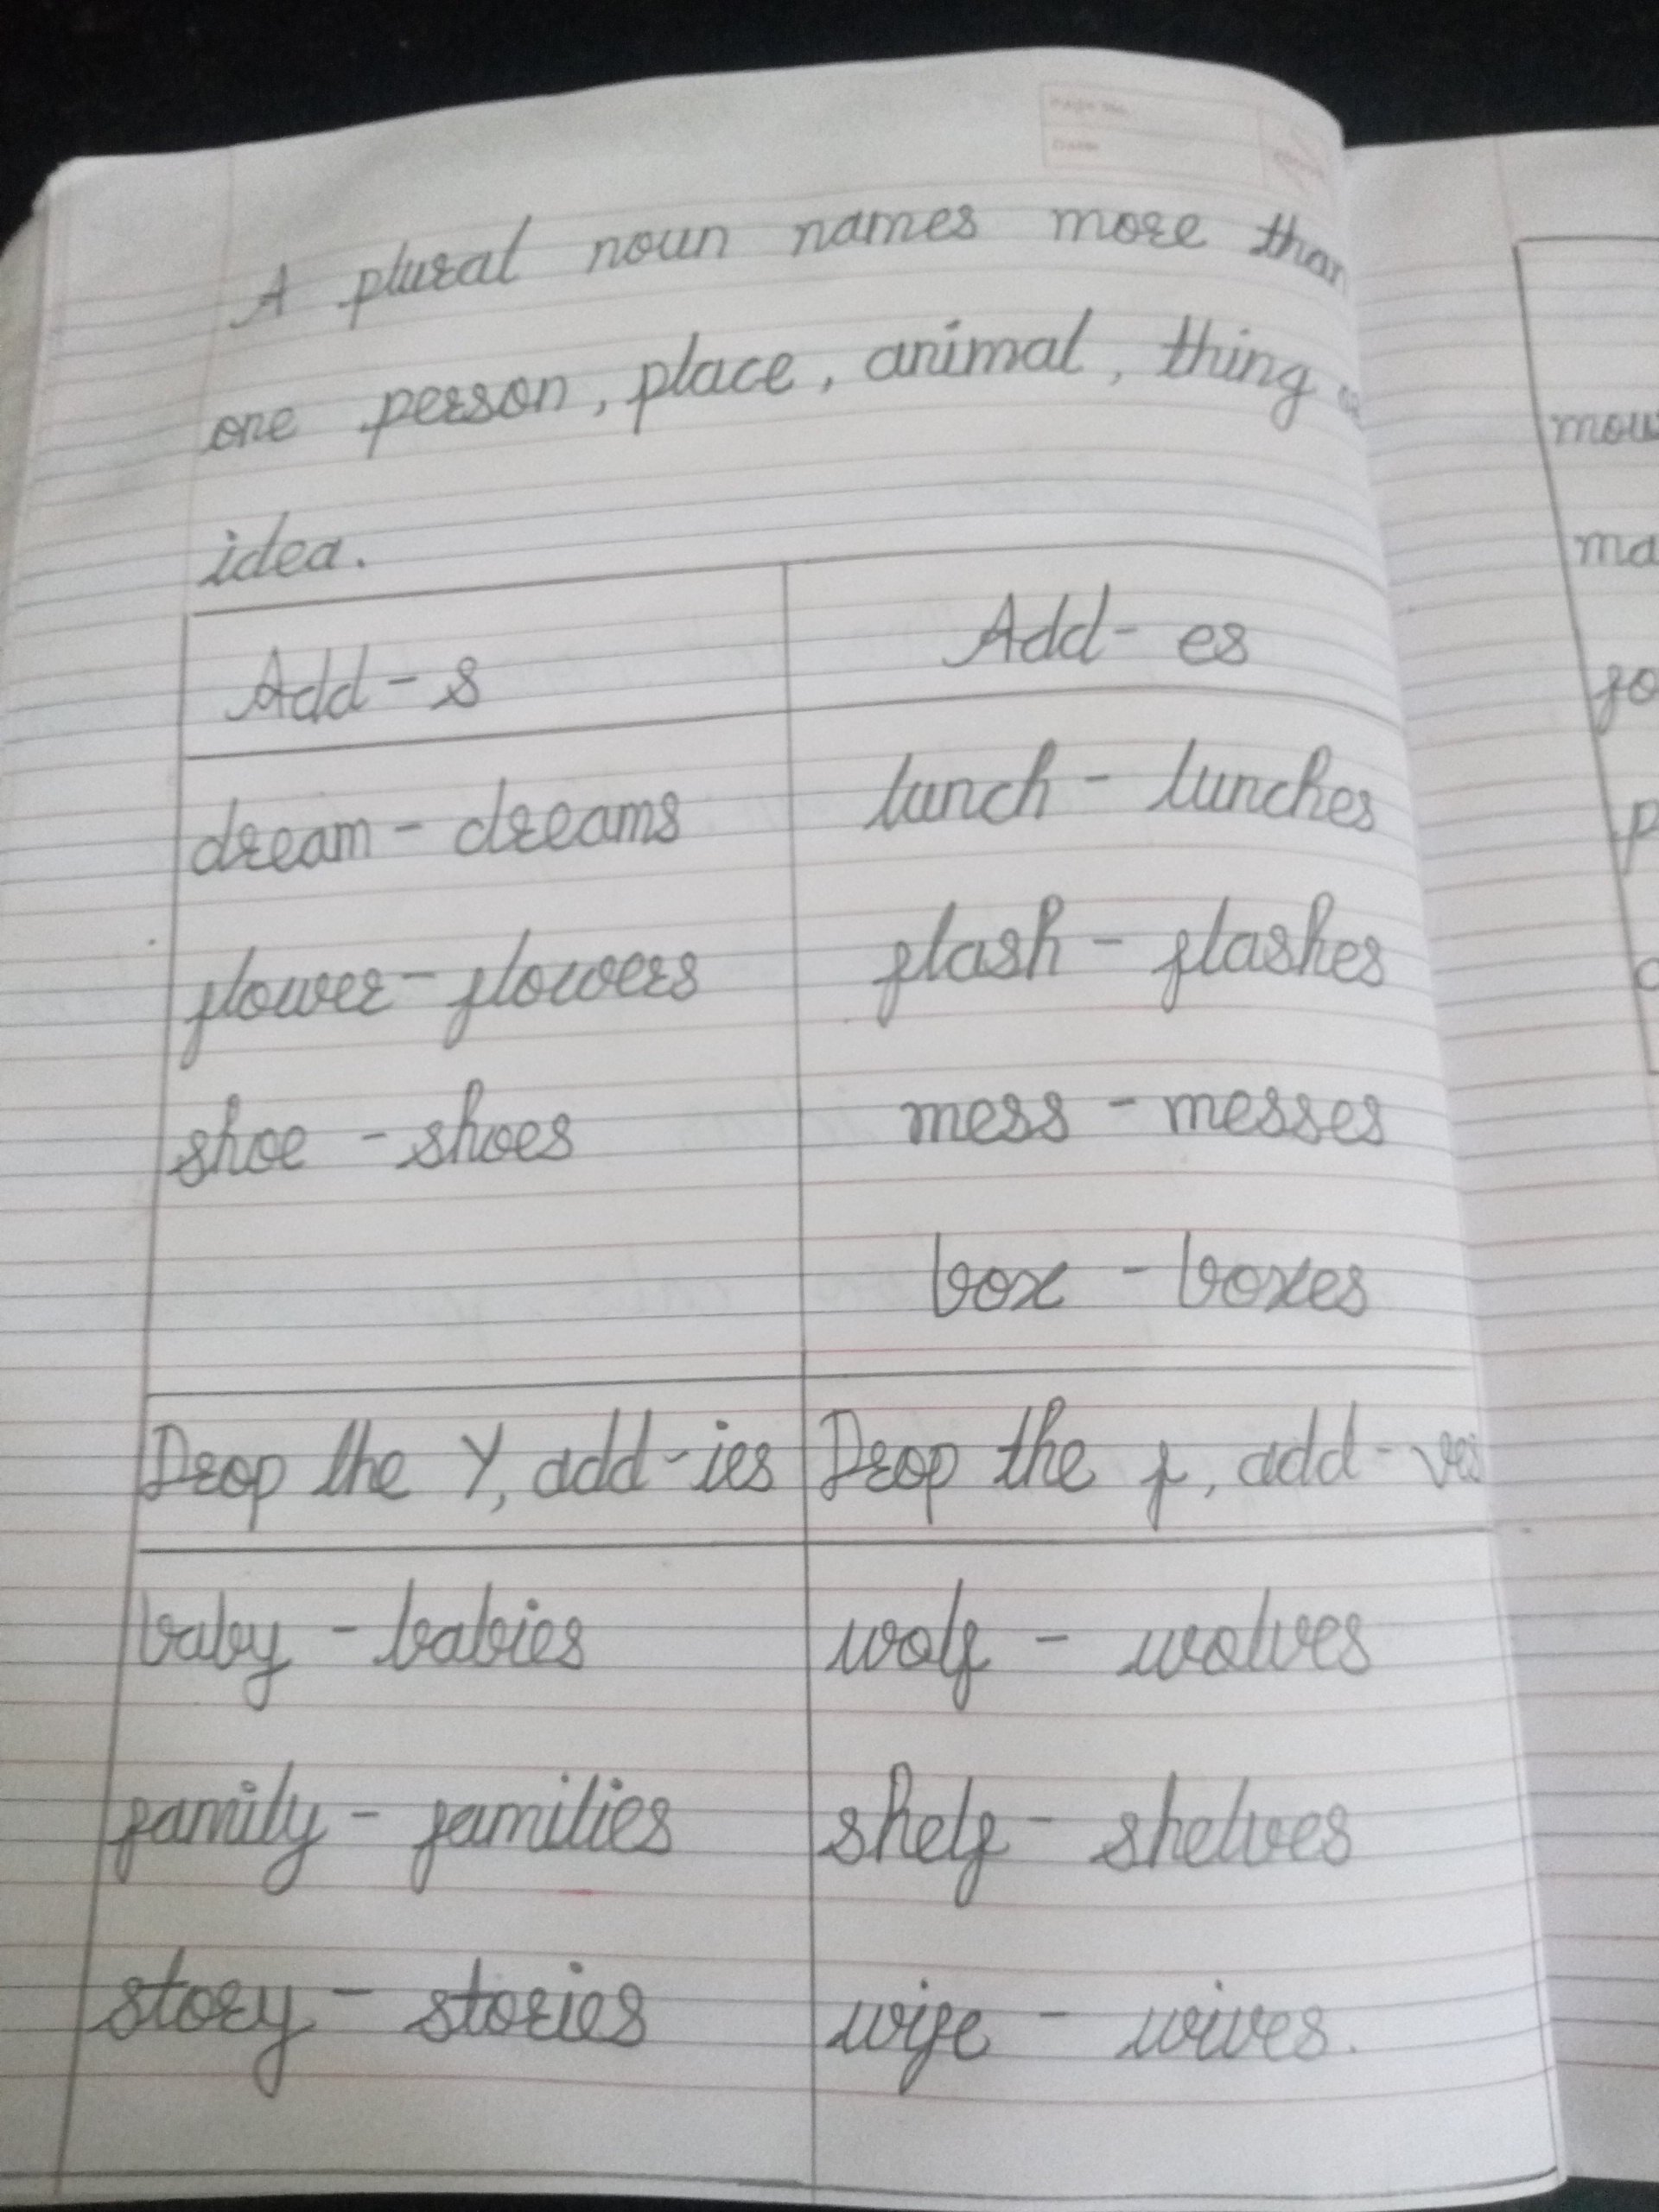 A plural noun names more than
one person, place, animal, thing or
idea.
Add - s
Add - es
dream - dreams
lunch - lunches
flower - flowers
flash - flashes
shoe - shoes
mess - messes
box - boxes
Drop the Y, add - ies
Drop the f, add - ves
baby - babies
wolf - wolves
family - families
shelf - shelves
story - stories
wife - wives.
Page No.
Date